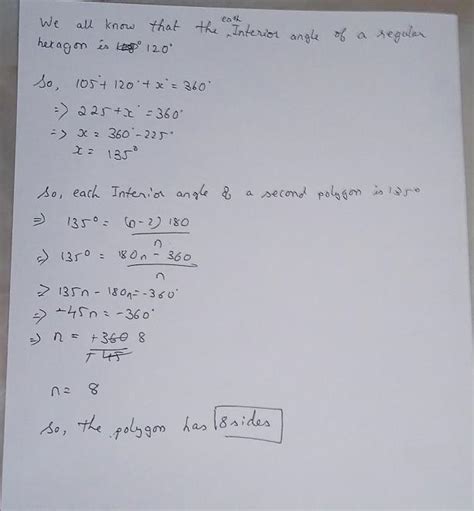 We all know that the each Interior angle of a regular
hexagon is 120°
So, 105° + 120° + x° = 360°
=> 225 + x° = 360°
=> x = 360° - 225°
x = 135°
So, each Interior angle of a second polygon is 135°
=> 135° = (n-2) 180
n
=> 135° = 180n - 360
n
=> 135n - 180n = -360°
=> -45n = -360°
=> n = +360 8
+45
n = 8
So, the polygon has 8 sides